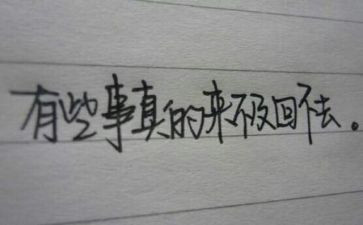 有些事真的来不及回不去。